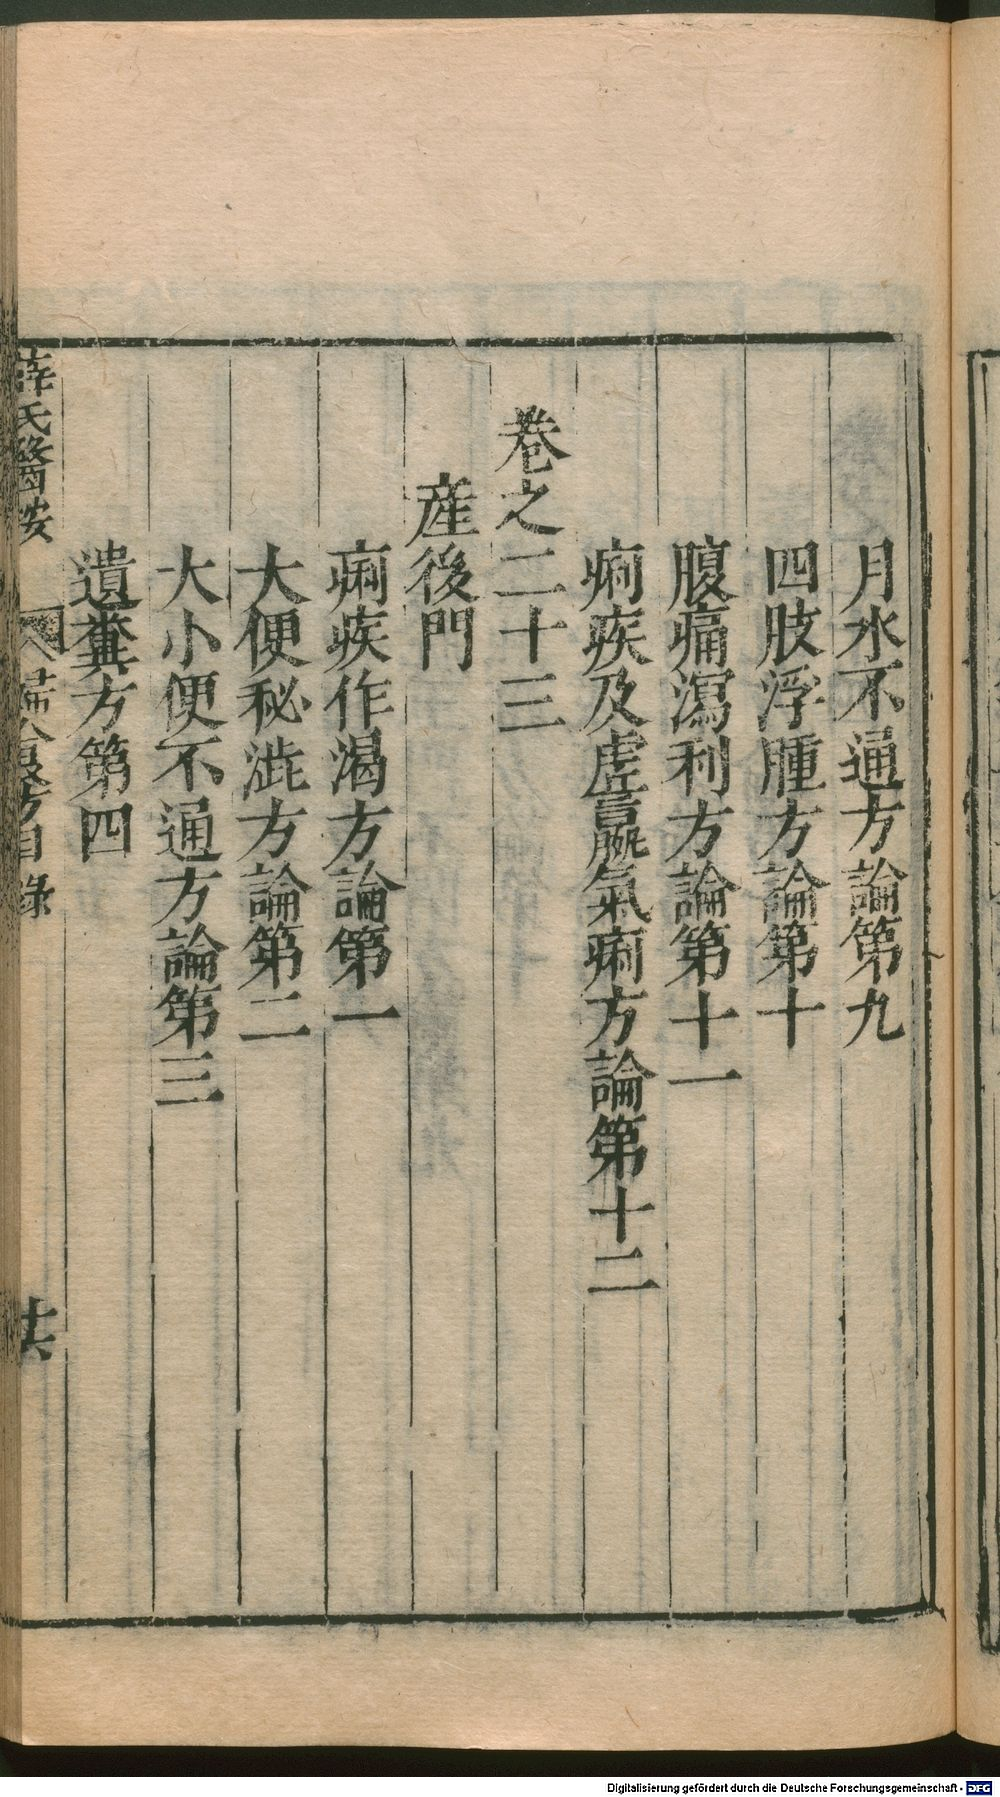 月水不通方論第九
四肢浮腫方論第十
腹痛瀉利方論第十一
痢疾及虗羸氣痢方論第十二
卷之二十三
産後門
痢疾作渴方論第一
大便秘澁方論第二
大小便不通方論第三
遺糞方第四
薛氏醫按 婦人良方目錄 廿六
Digitalisierung gefördert durch die Deutsche Forschungsgemeinschaft - DFG